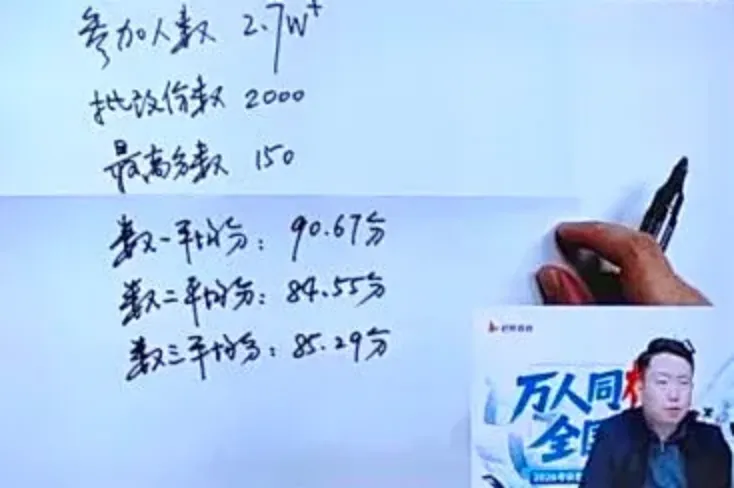 参加人数 2.7W+
批改份数 2000
最高分数 150
数一平均分：90.67分
数二平均分：84.55分
数三平均分：85.29分
万人同
全国